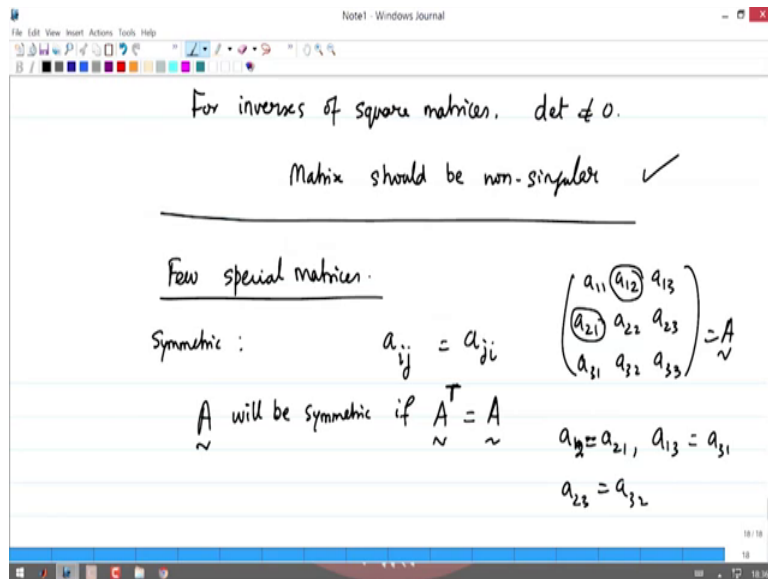 Note1 - Windows Journal
File Edit View Insert Actions Tools Help
B I
For inverses of square matrices. det ≠ 0.
Matrix should be non-singular ✓
Few special matrices.
Symmetric : a_ij = a_ji
A will be symmetric if A^T = A
a11 a12 a13
a21 a22 a23 = A
a31 a32 a33
a12 = a21, a13 = a31
a23 = a32
18/18
18
18:36